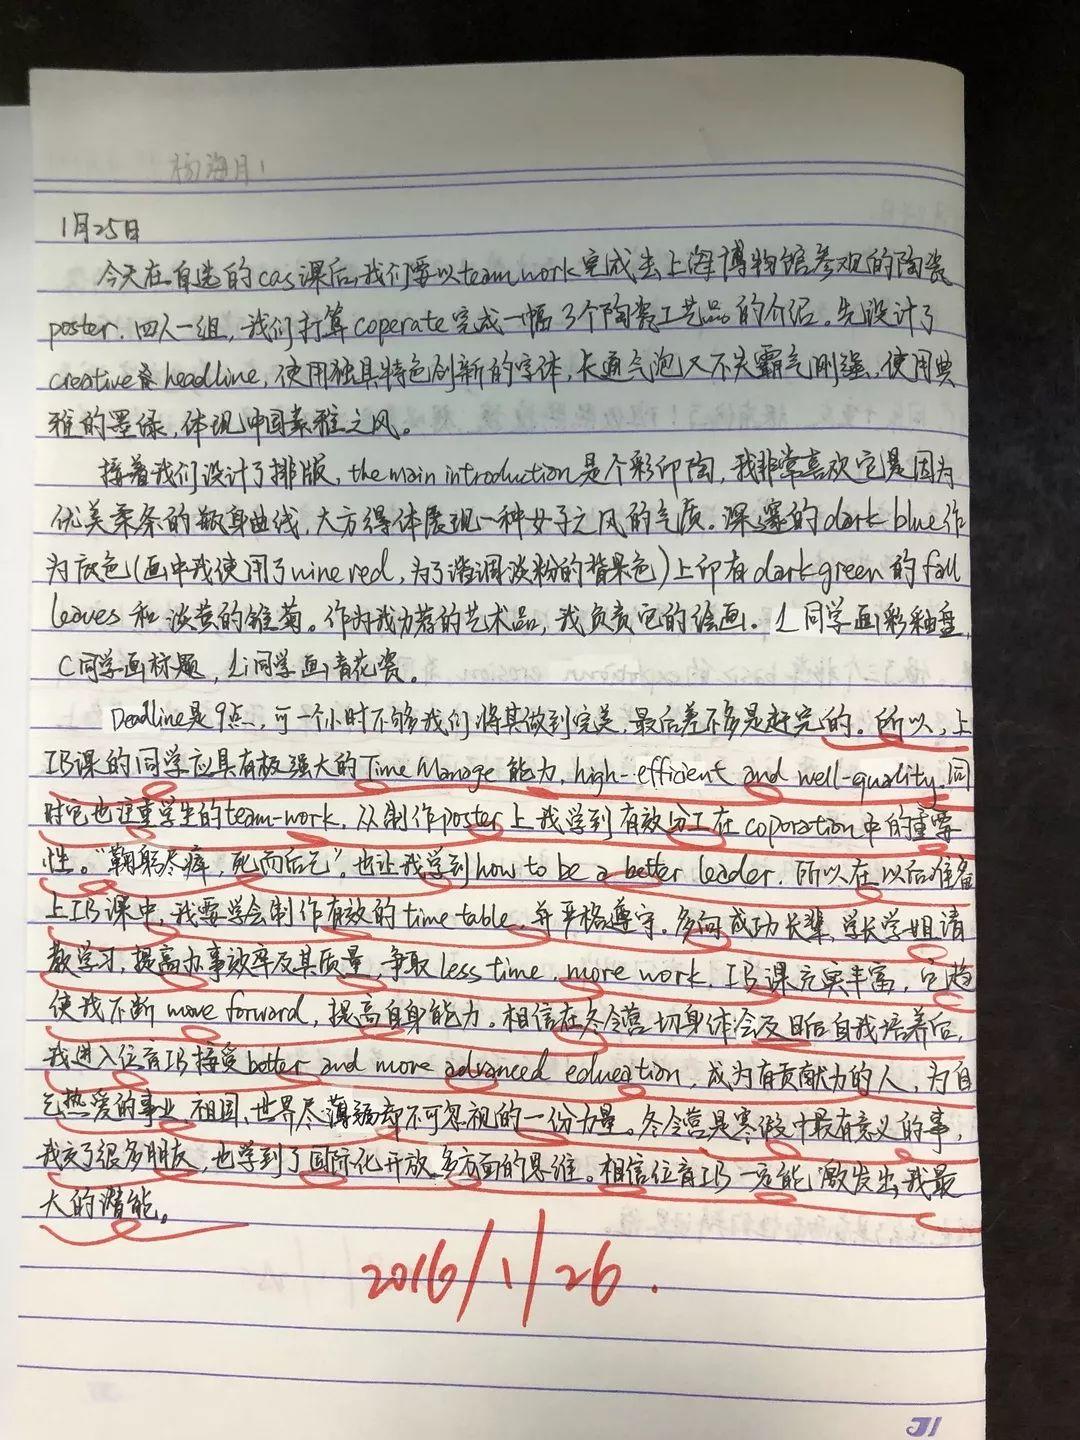 杨海月
1月25日
今天在自选的cas课后,我们要以team work完成去上海博物馆参观的陶瓷
poster. 四人一组,我们打算coperate完成一幅3个陶瓷工艺品的介绍。先设计了
creative headline, 使用独具特色创新的字体,卡通气泡又不失霸气刚强,使用典
雅的墨绿,体现中国素雅之风。
接着我们设计了排版, the main introduction是个彩印陶,我非常喜欢它是因为
优美柔条的瓶身曲线,大方得体展现一种女子之风的气质。深邃的dark blue作
为底色(画中我使用了wine red, 为了谐调淡粉的背景色)上印有dark green的fall
leaves和淡黄的雏菊。作为我力荐的艺术品,我负责它的绘画. L同学画彩釉盘,
C同学画标题, Li同学画青花瓷。
Deadline是9点,可一个小时不够我们将其做到完美,最后差不多是赶完的。所以,上
IB课的同学应具有极强大的Time Manage能力, high-efficient and well-quality. 同
时它也注重学生的team-work. 从制作poster上我学到有效分工在coporation中的重要
性。“鞠躬尽瘁,死而后已”。也让我学到how to be a better leader. 所以在以后准备
上IB课中,我要学会制作有效的time table, 并严格遵守。多向成功长辈,学长学姐请
教学习,提高办事效率及其质量,争取less time, more work. IB课充实丰富,它趋
使我不断move forward, 提高自身能力。相信在冬令营切身体会及日后自我培养后,
我进入位育IB接受better and more advanced education, 成为有贡献力的人,为自
己热爱的事业、祖国、世界尽薄弱却不可忽视的一份力量。冬令营是寒假中最有意义的事,
我交了很多朋友,也学到了国际化开放、多方面的思维。相信位育IB一定能激发出我最
大的潜能。
2016/1/26.